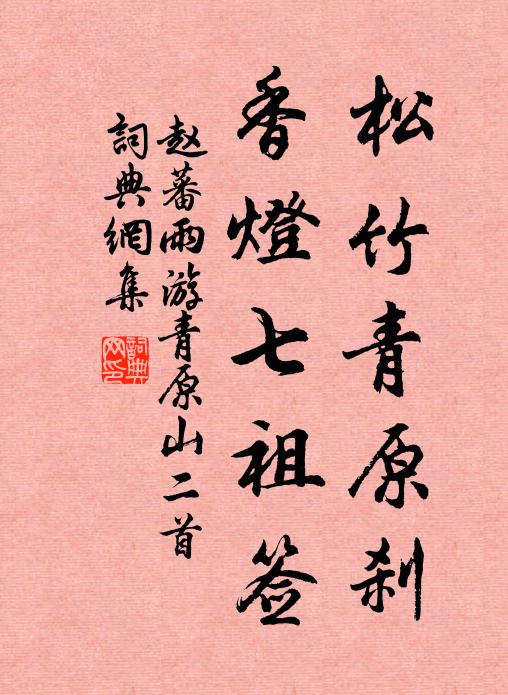 松竹青原刹
香燈七祖签
赵蕃雨游青原山二首
詞典網集
詞典網印